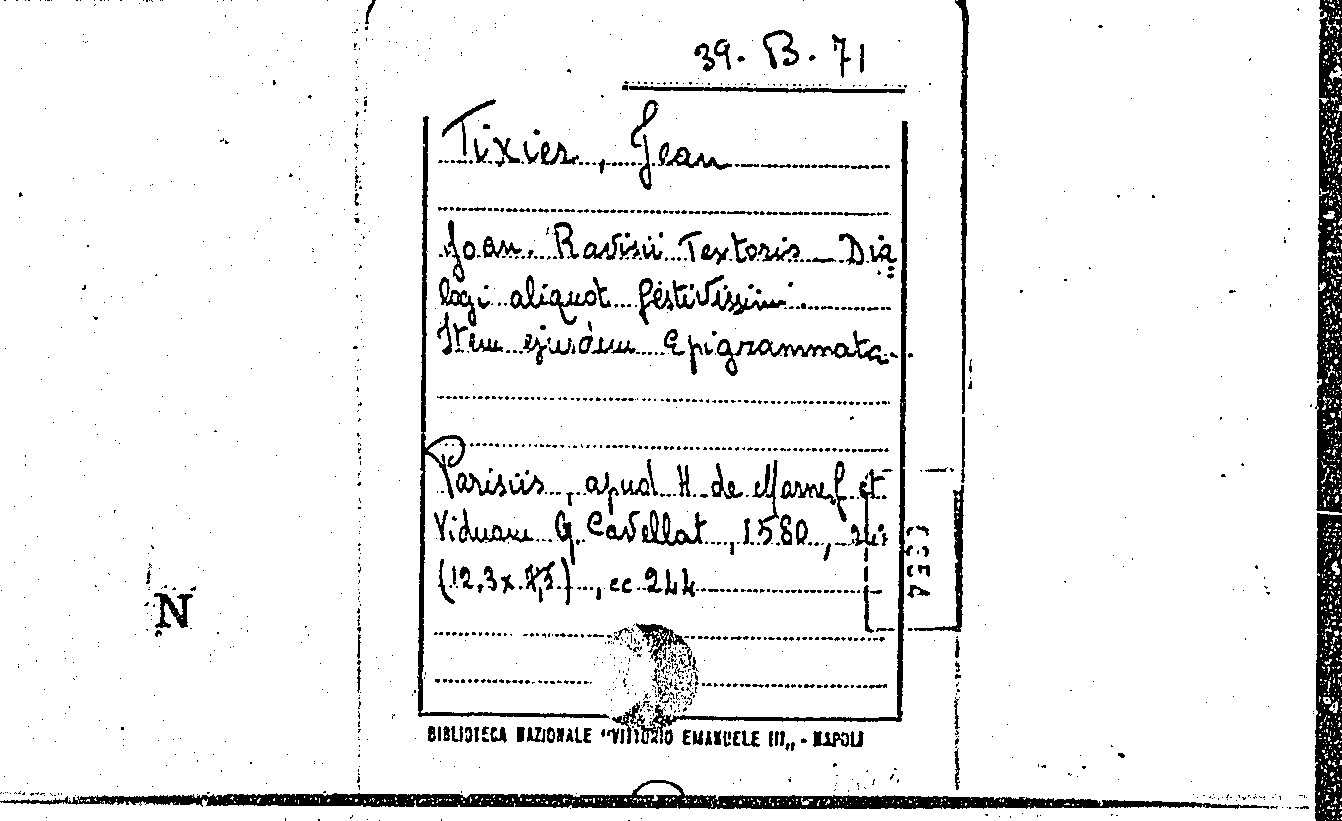 39. B. 71
Tixier, Jean
Joan. Ravisii Textoris Dia
logi aliquot festivissimi.
Item ejusdem Epigrammata.
Parisiis, apud H. de Marnef et
Viduam G. Cavellat, 1580, 24°
(12,3x7,5), cc 244
N
BIBLIOTECA NAZIONALE "VITTORIO EMANUELE III„ - NAPOLI